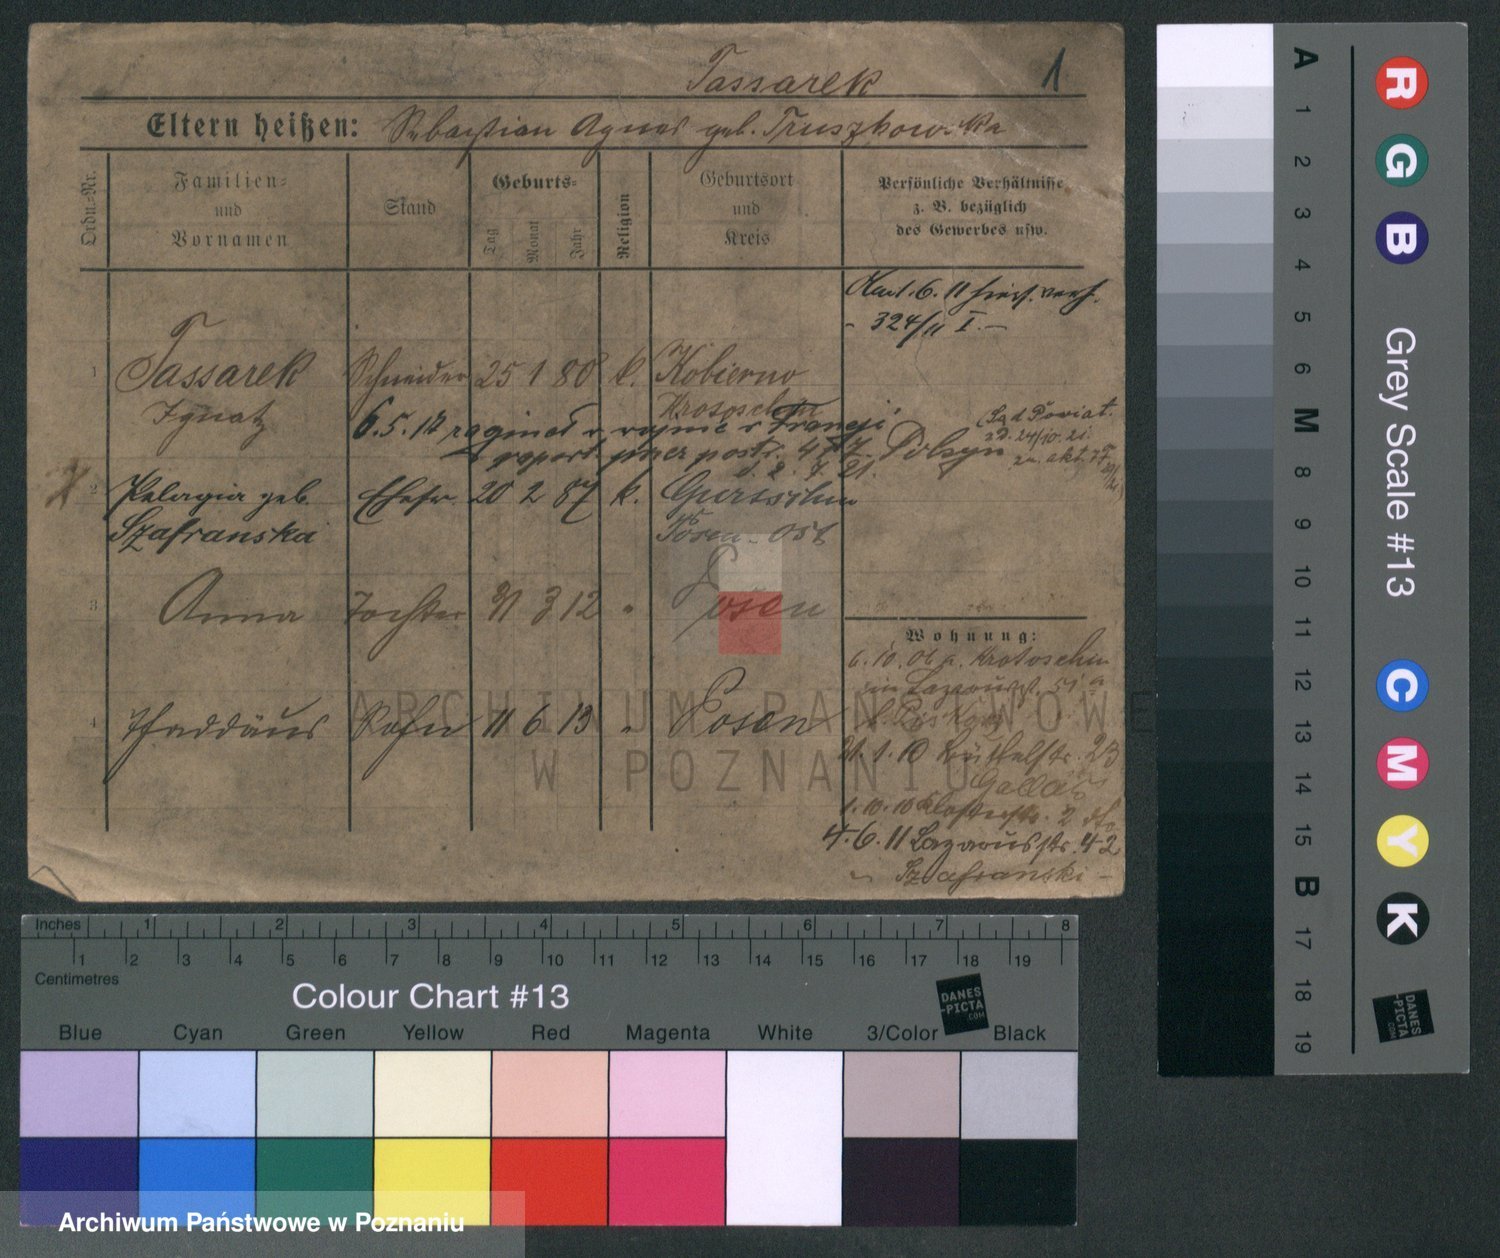 Tassarek 1
Eltern heißen: Sebastian Agnes geb. Truszkowska
Ordn.-Nr.
Familien-
und
Vornamen
Stand
Geburts-
Tag
Monat
Jahr
Religion
Geburtsort
und
Kreis
Persönliche Verhältnisse
z. B. bezüglich
des Gewerbes usw.
6. 11
- 324/11 I. -
1 Tassarek Schneider 25 1 80 k. Kobierno
Ignatz Krotoschin
6.5.18 zaginął w wojnie w Francji
raport przez 477
d. 2. 7. 21.
Sąd Powiat.
24/10. 21.
2 Pelagia geb. Ehefr. 20 2 87 k. Gurtschin
Szafranska Posen-Ost
3 Anna Tochter 31 3 12 " Posen
4 Thaddäus Sohn 11 6 13 " Posen
Wohnung:
6. 10. 06 a. Krotoschin
in Lazarusst. 51a
21. 1. 10 23
Gallas
1. 10. 10 Klosterstr. 2
4. 6. 11 Lazarusstr. 42
Szafranski -
ARCHIWUM PAŃSTWOWE
W POZNANIU
Inches 1 2 3 4 5 6 7 8
1 2 3 4 5 6 7 8 9 10 11 12 13 14 15 16 17 18 19
Centimetres
Colour Chart #13
DANES
-PICTA
.COM
Blue Cyan Green Yellow Red Magenta White 3/Color Black
Archiwum Państwowe w Poznaniu
A 1 2 3 4 5 6 M 8 9 10 11 12 13 14 15 B 17 18 19
R G B
Grey Scale #13
C M Y K
DANES
-PICTA
.COM